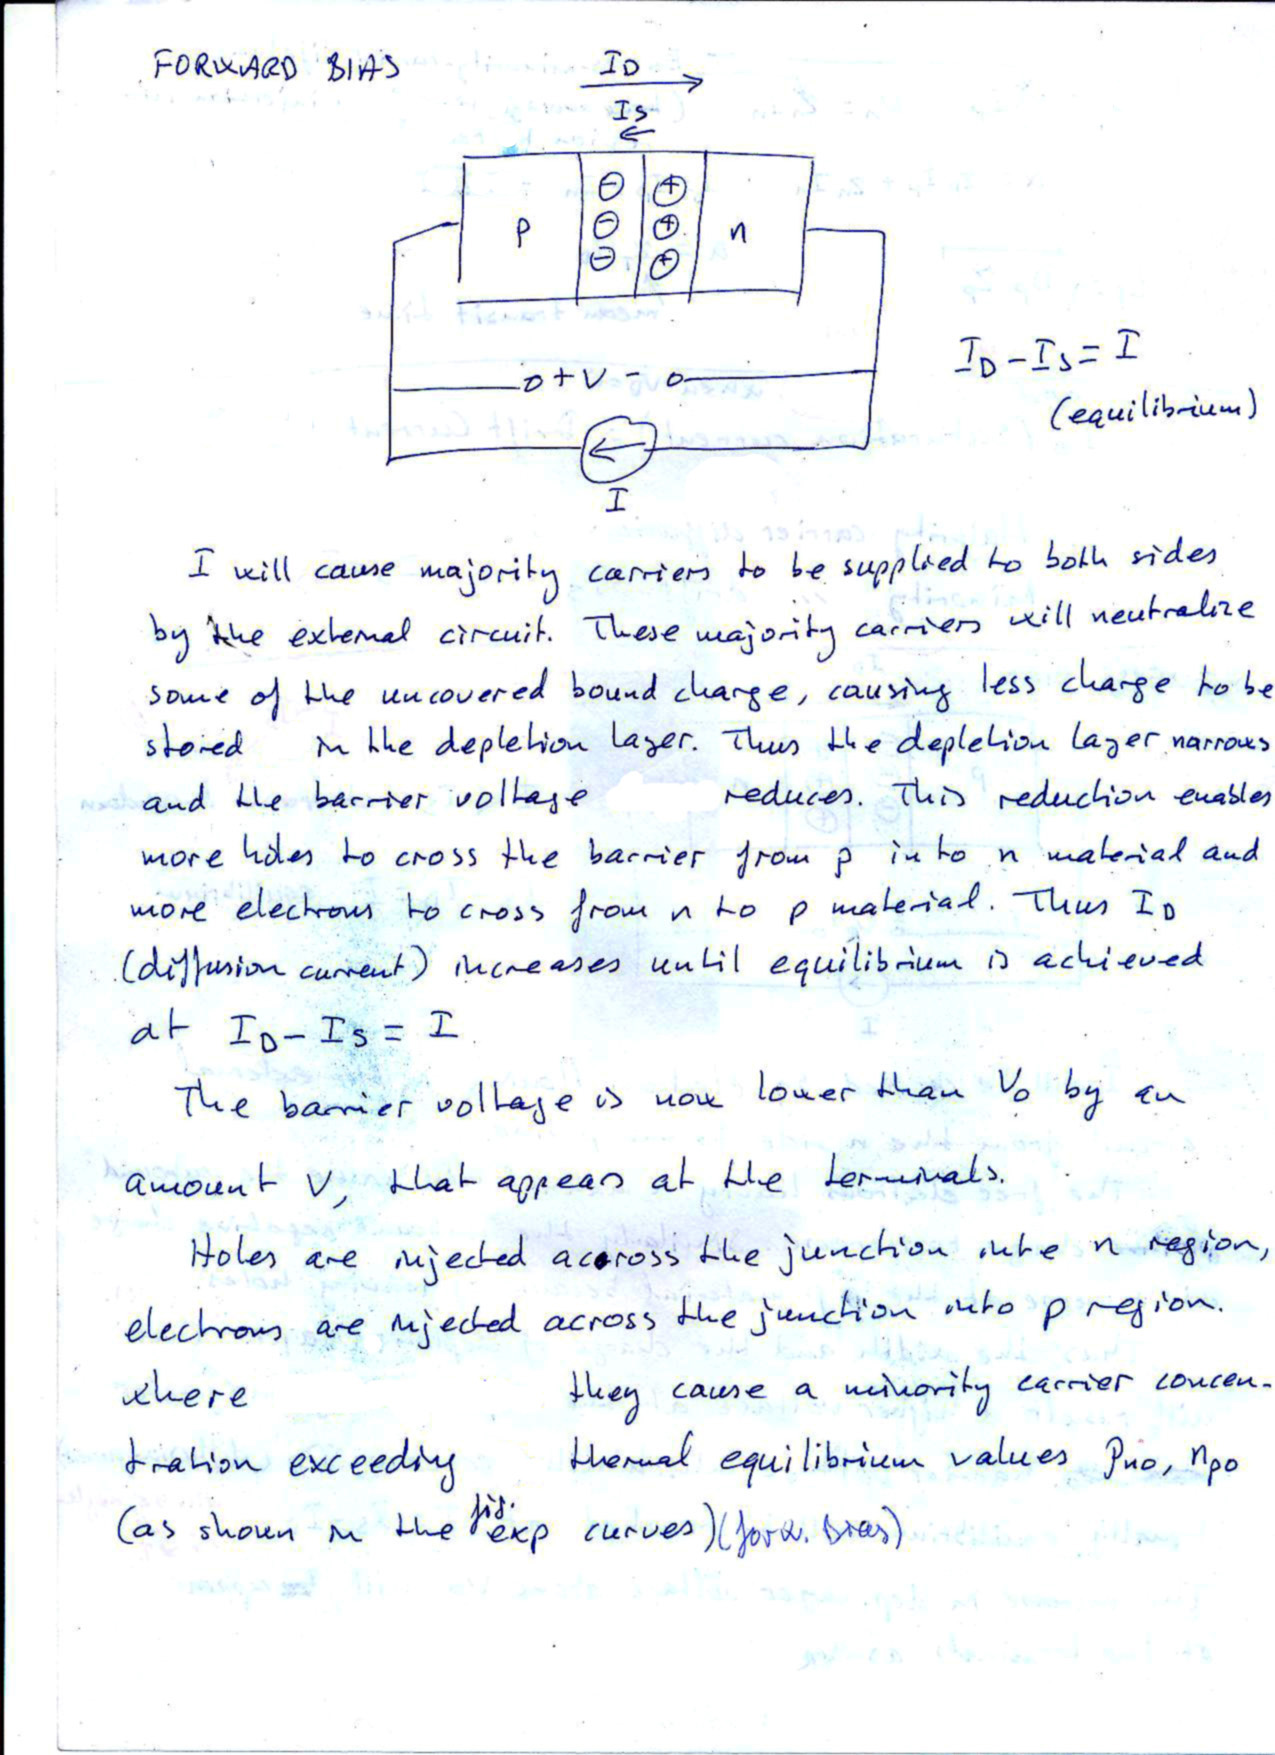 FORWARD BIAS
I_D
I_S
⊖ ⊕
p ⊖ ⊕ n
⊖ ⊕
I_D - I_S = I
o + V - o
(equilibrium)
I
I will cause majority carriers to be supplied to both sides
by the external circuit. These majority carriers will neutralize
some of the uncovered bound charge, causing less charge to be
stored in the depletion layer. Thus the depletion layer narrows
and the barrier voltage reduces. This reduction enables
more holes to cross the barrier from p into n material and
more electrons to cross from n to p material. Thus I_D
(diffusion current) increases until equilibrium is achieved
at I_D - I_S = I
The barrier voltage is now lower than V_0 by an
amount V, that appears at the terminals.
Holes are injected accross the junction into n region,
electrons are injected across the junction into p region.
where they cause a minority carrier concen-
tration exceeding thermal equilibrium values p_no, n_po
(as shown in the fig. exp curves) (forw. Bias)